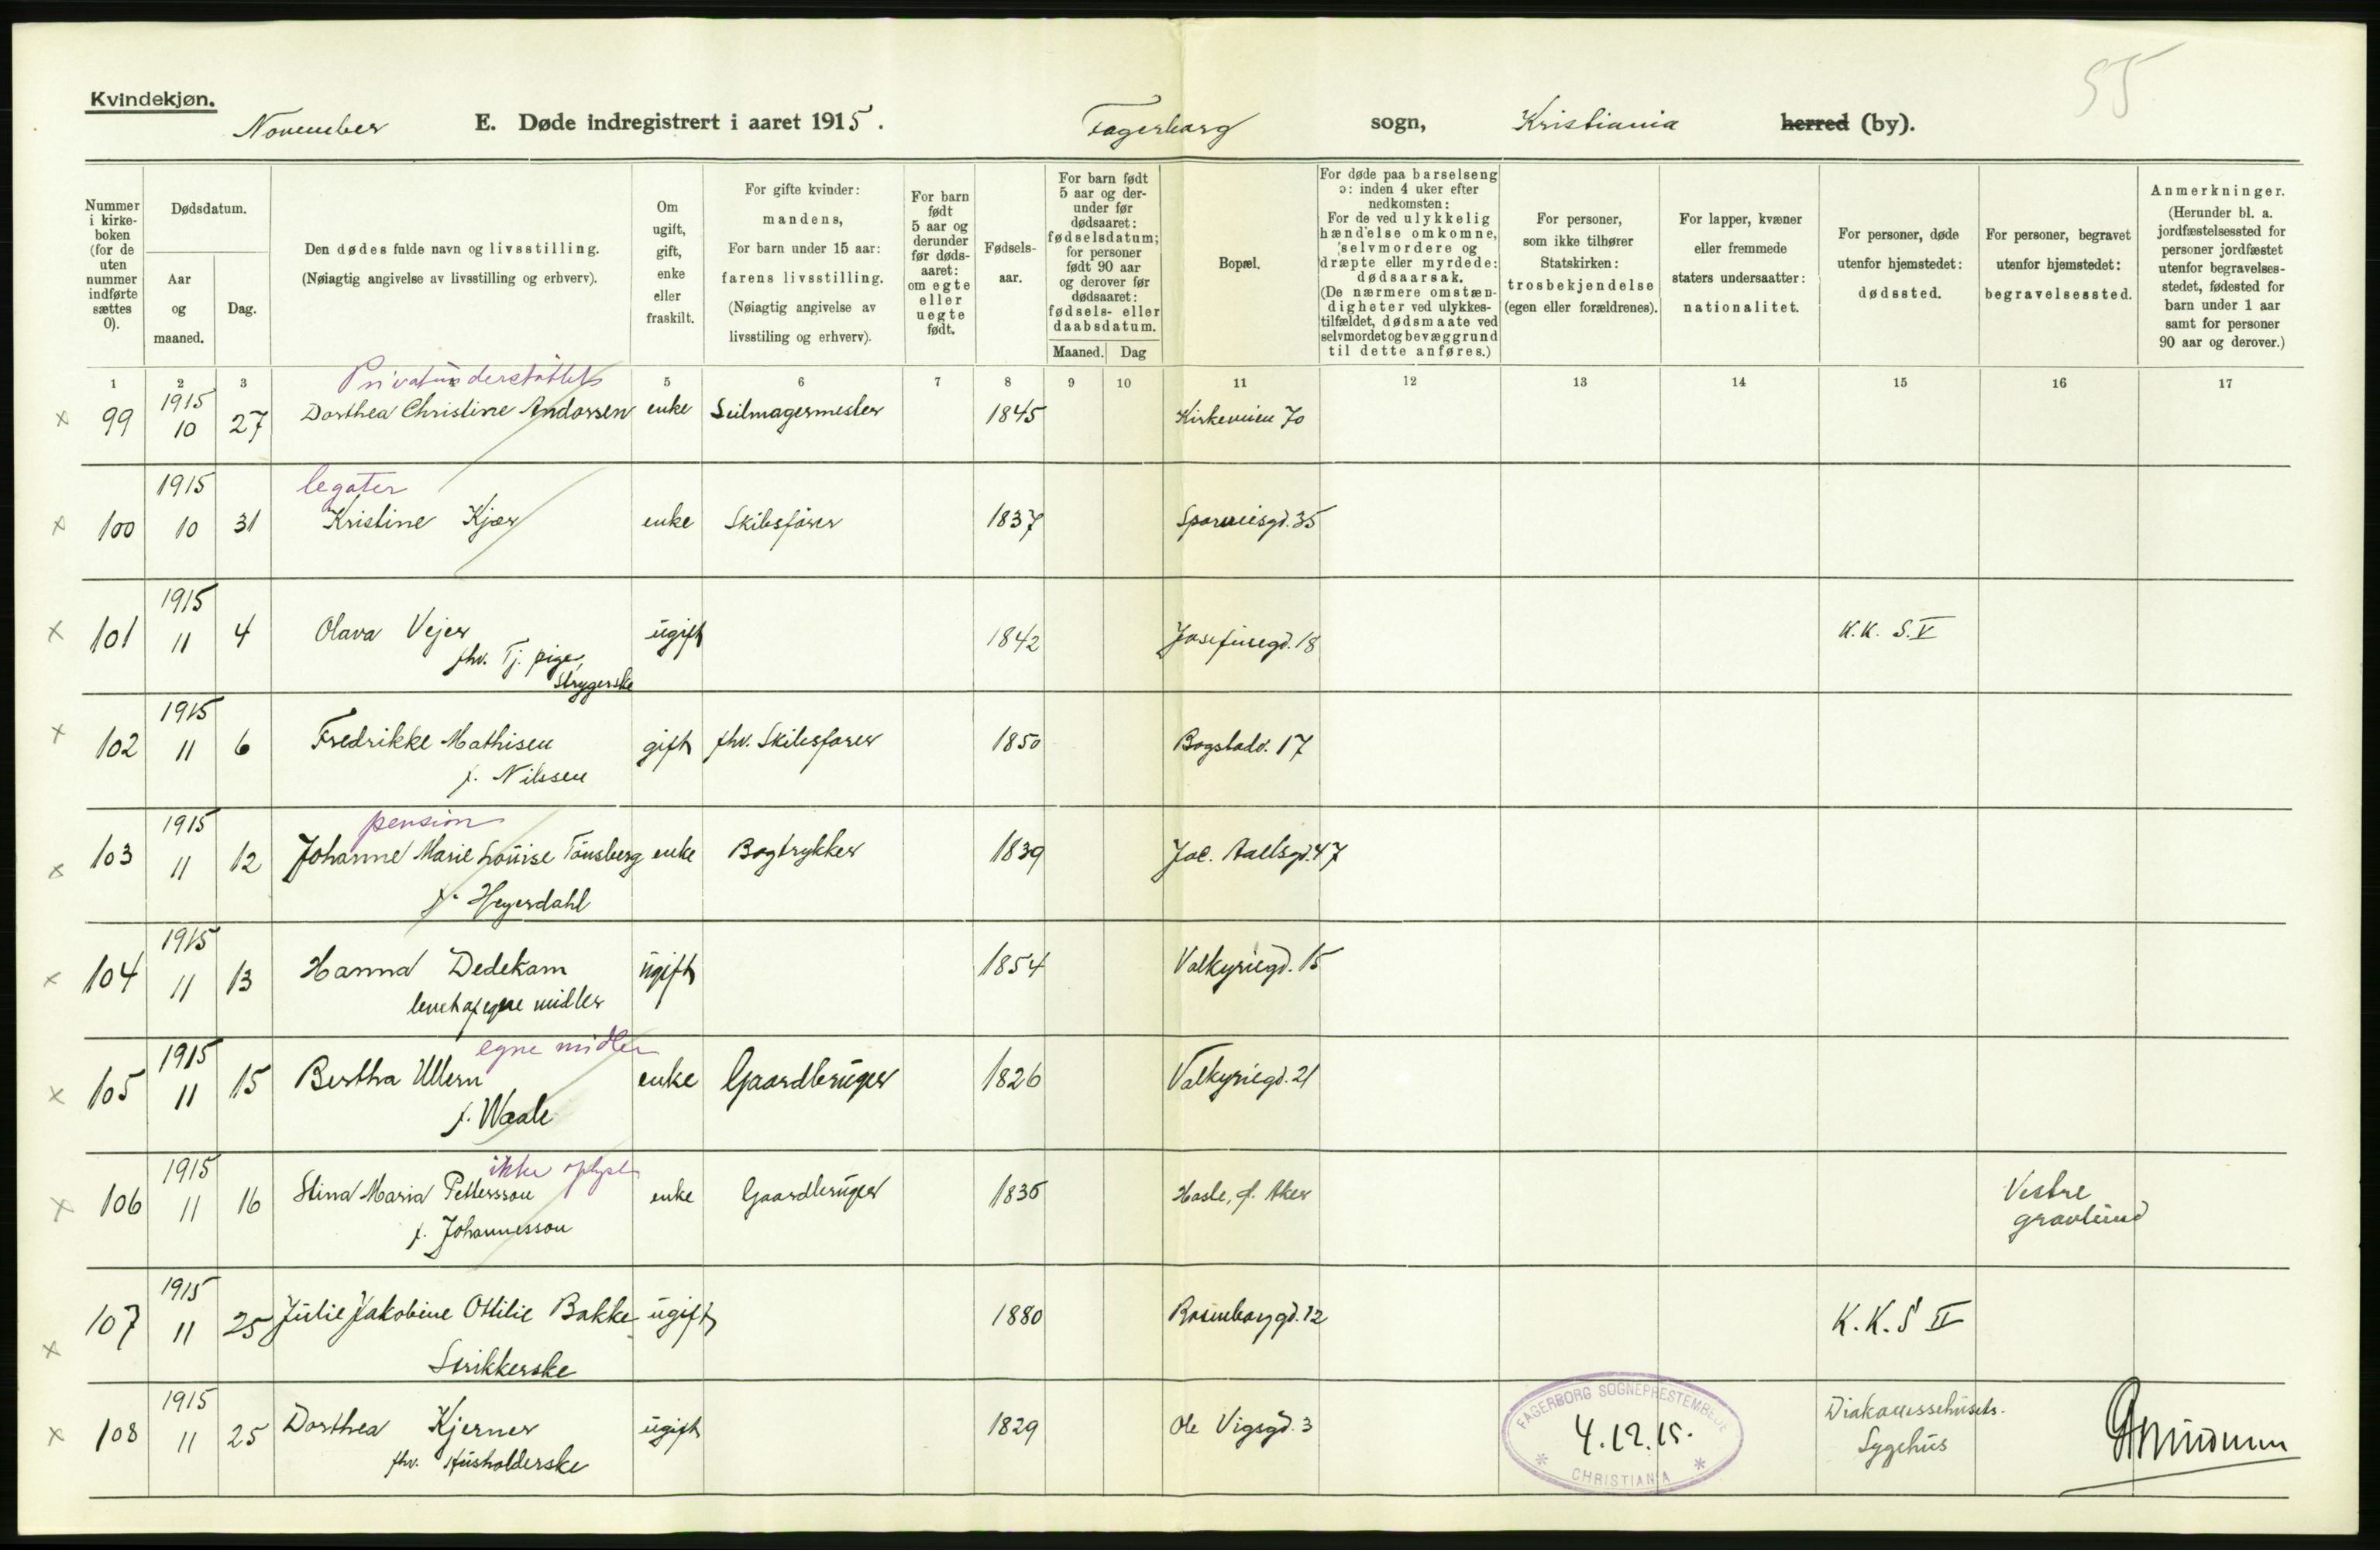 55
Kvindekjøn.
November E. Døde indregistrert i aaret 1915. Fagerborg sogn, Kristiania herred (by).
Nummer i kirke-boken (for de uten nummer indførte sættes 0).
Dødsdatum.
Aar og maaned.
Dag.
Den dødes fulde navn og livsstilling.
(Nøiagtig angivelse av livsstilling og erhverv).
Om ugift, gift, enke eller fraskilt.
For gifte kvinder:
mandens,
For barn under 15 aar:
farens livsstilling.
(Nøiagtig angivelse av
livsstiling og erhverv).
For barn født 5 aar og derunder før døds-aaret: om egte eller uegte født.
Fødsels-aar.
For barn født 5 aar og der-under før dødsaaret: fødselsdatum; for personer født 90 aar og derover før dødsaaret: fødsels- eller daabsdatum.
Maaned. Dag
Bopæl.
For døde paa barselseng
ɔ: inden 4 uker efter
nedkomsten:
For de ved ulykkelig
hændelse omkomne,
selvmordere og
dræpte eller myrdede:
dødsaarsak.
(De nærmere omstæn-
digheter ved ulykkes-
tilfældet, dødsmaate ved
selvmordet og bevæggrund
til dette anføres.)
For personer,
som ikke tilhører
Statskirken:
trosbekjendelse
(egen eller forældrenes).
For lapper, kvæner
eller fremmede
staters undersaatter:
nationalitet.
For personer, døde
utenfor hjemstedet:
dødssted.
For personer, begravet
utenfor hjemstedet:
begravelsessted.
Anmerkninger.
(Herunder bl. a.
jordfæstelsessted for
personer jordfæstet
utenfor begravelses-
stedet, fødested for
barn under 1 aar
samt for personer
90 aar og derover.)
1 2 3 5 6 7 8 9 10 11 12 13 14 15 16 17
Privatunderstøttet
x 99 1915 10 27 Dorthea Christine Andorsen enke Seilmagermester 1845 Kirkeveien 70
legater
x 100 1915 10 31 Kristine Kjær enke Skibsfører 1837 Sporveisgd. 35
x 101 1915 11 4 Olava Vejer ugift 1842 Josefinegd. 18 K.K. S.V
fhv. Tj. pige,
Strygerske
x 102 1915 11 6 Fredrikke Mathisen gift fhv. Skibsfører 1850 Bogstadv. 17
f. Nilssen
pension
x 103 1915 11 12 Johanne Marie Louise Tønsberg enke Bogtrykker 1839 Jac. Aallsgd. 47
f. Heyerdahl
x 104 1915 11 13 Hanna Dedekam ugift 1854 Valkyriegd. 15
levet af egne midler
egne midler
x 105 1915 11 15 Bertha Ullern enke Gaardbruger 1826 Valkyriegd. 21
f. Waale
ikke oplyst
x 106 1915 11 16 Stina Maria Pettersson enke Gaardbruger 1835 Hasle, Ø. Aker Vestre gravlund
f. Johannesson
x 107 1915 11 25 Julie Jakobine Ottilie Bakke ugift 1880 Rosenborggd. 12 K.K.S II
Strikkerske
x 108 1915 11 25 Dorthea Kjerner ugift 1829 Ole Vigsgd. 3 Diakonissehusets Sygehus
fhv. Husholderske
FAGERBORG SOGNEPRESTEMBEDE
4.12.15.
* CHRISTIANIA *